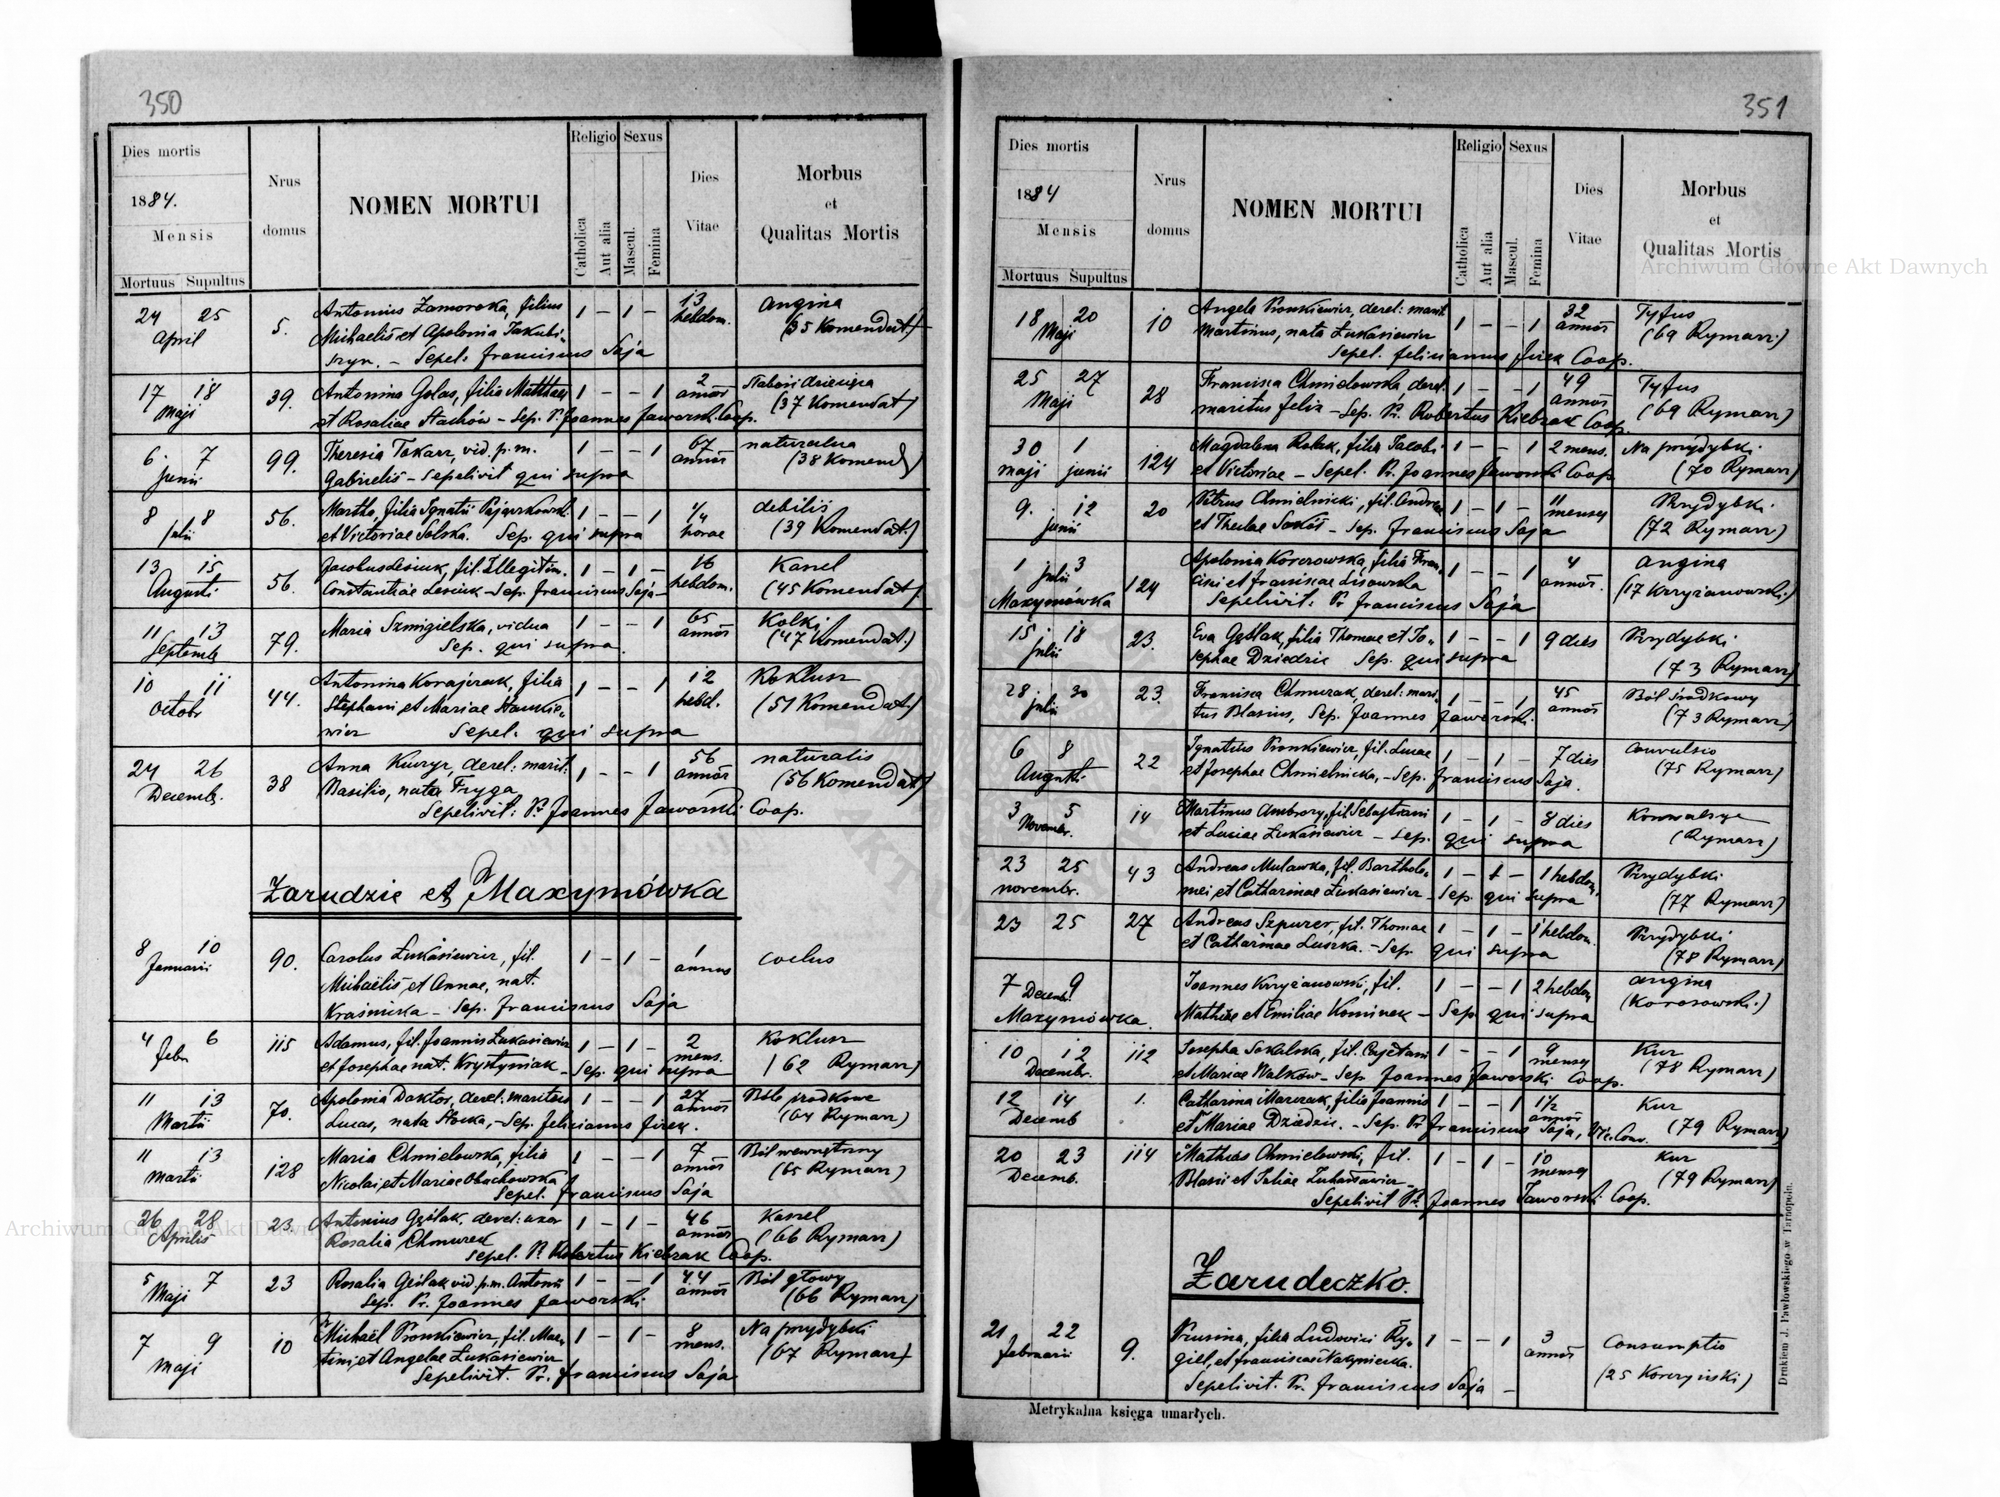 350
Dies mortis
1884.
Mensis
Mortuus Supultus
Nrus
domus
NOMEN MORTUI
Religio Sexus
Catholica
Aut alia
Mascul.
Femina
Dies
Vitae
Morbus
et
Qualitas Mortis
24 25 5. Antonius Zamorska, filius 1 – 1 – 13 angina
April Michaelis et Apolonia Jakubi- hebdom. (35 Komendat)
szyn. – Sepel: Franciscus Saja
17 18 39. Antonina Golas, filia Matthaei 1 – – 1 2
Maji et Rosaliae Stachów – Sep. Pr. Joannes Jaworski Coop. annor (37 Komendat)
6 7 99. Theresia Tokarz, vid. p. m. 1 – – 1 67 naturalna
junii Gabrielis – Sepelivit qui supra annor (38 Komend)
8 8 56. Martha, filia Ignatii 1 – – 1 1/4 debilis
julii et Victoriae Solska. Sep. qui supra horae (39 Komendat.)
13 15 56. Jacobus Lesiuk, fil. Illegitim. 1 – 1 – 16 Kaszel
Augusti Constantiae Lesiuk – Sep. Franciscus Saja – hebdom. (45 Komendat)
11 13 79. Maria Szmigielska, vidua 1 – – 1 65 Kolki
Septemb. Sep. qui supra. annor (47 Komendat.)
10 11 44. Antonina Korajczak, filia 1 – – 1 12 Koklusz
Octobr Stephani et Mariae Stankie- hebd. (51 Komendat.)
wicz Sepel. qui supra
24 26 38 Anna Kuryz, derel: marit: 1 – – 1 56 naturalis
Decembr. Basilio, nata Fryga annor (56 Komendat)
Sepelivit: Pr Joannes Jaworski Coop.
Zarudzie et Maxymówka
8 10 90. Carolus Łukasiewicz, fil. 1 – 1 – 1
Januarii Michaëlis et Annae, nat. annus
Kraśnicka – Sep. Franciscus Saja
4 6 115 Adamus, fil. Joannis Łukasiewicz 1 – 1 – 2 Koklusz
Febr et Josephae nat. Krystyniak – Sep. qui supra mens. (62 Rymarz)
11 13 70. Apolonia Daktos, derel. maritus 1 – – 1 27 Bóle środkowe
Martii Lucas, nata – Sep. Felicianus Firek. annor (64 Rymarz)
11 13 128 Maria Chmielowska, filia 1 – – 1 7 Ból wewnętrzny
Martii Nicolai et Mariae Obuchowska annor (65 Rymarz)
Sepel. Franciscus Saja
26 28 23. Antonius Gęślak, derel: uxor 1 – 1 – 46 Kaszel
Aprilis Rosalia Chmurek annor (66 Rymarz)
Sepel. Pr Robertus Kiebzak Coop.
5 7 23 Rosalia Gęślak vid. p. m. Antonii 1 – – 1 44 Ból głowy
Maji Sep. Pr. Joannes Jaworski annor (66 Rymarz)
7 9 10 Michaël Pronkiewicz, fil. Mar- 1 – 1 – 8 Na przydybki
Maji tini et Angelae Łukasiewicz mens. (67 Rymarz)
Sepelivit. Pr. Franciscus Saja
351
Dies mortis
1884
Mensis
Mortuus Supultus
Nrus
domus
NOMEN MORTUI
Religio Sexus
Catholica
Aut alia
Mascul.
Femina
Dies
Vitae
Morbus
et
Qualitas Mortis
18 20 10 Angela Pronkiewicz, derel: marit 1 – – 1 32 Tyfus
Maji Martinus, nata Łukasiewicz annor (69 Rymarz)
Sepel. Felicianus Firek Coop.
25 27 28 Francisca Chmielowska, derel. 1 – – 1 49 Tyfus
Maji maritus Felix – Sep. Pr. Robertus Kiebzak Coop. annor (69 Rymarz)
30 1 124 Magdalena Rolak, filia Jacobi 1 – – 1 2 mens. Na przydybki
maji junii et Victoriae – Sepel. Pr. Joannes Jaworski Coop. (70 Rymarz)
9. 12 20 Petrus Chmielnicki, fil. Andreae 1 – 1 – 11 Przydybki
junii et Theclae – Sep. Franciscus Saja menses (72 Rymarz)
1 3 124 Apolonia Korzowska, filia Fran- 1 – – 1 4 angina
julii cisci et Franciscae Lisowska annor (17 Krzyżanowski)
Maxymówka Sepelivit: Pr Franciscus Saja
15 18 23. Eva Gęślak, filia Thomae et Jo- 1 – – 1 9 dies Przydybki
julii sephae Dziedzic Sep. qui supra (73 Rymarz)
28. 30 23. Francisca Chmurzak, derel: mari- 1 – – 1 45 Ból środkowy
julii tus Blasius, Sep. Joannes Jaworski. annor (73 Rymarz)
6 8 22 Ignatius Pronkiewicz, fil. Lucae 1 – 1 – 7 dies convulsio
Augusti et Josephae Chmielnicka, – Sep. Franciscus Saja. (75 Rymarz)
3 5 14 Martinus Ambrozy, fil. Sebastiani 1 – 1 – 8 dies Konwalsye
Novembr. et Luciae Łukasiewicz – Sep. qui supra (Rymarz)
23 25 43 Andreas Mulawka, fil. Bartholo- 1 – 1 – 1 hebdom. Przydybki
novembr. mei et Catharinae Łukasiewicz – Sep qui supra (77 Rymarz)
23 25 27 Andreas Szpurer, fil. Thomae 1 – 1 – 1 hebdom. Przydybki
et Catharinae Luszka. – Sep. qui supra (78 Rymarz)
7 9 Joannes Krzyżanowski, fil. 1 – – 1 2 hebdom. angina
Decemb. Mathiae et Emiliae Kominek – Sep qui supra (Korosowski.)
Maxymówka.
10 12 112 Josepha Sokalska, fil. Cajetani 1 – – 1 9 Kur
Decembr. et Mariae Walków – Sep. Joannes Jaworski Coop. menses (78 Rymarz)
12 14 1. Catharina Marczak, filia Joannis 1 – – 1 1½ Kur
Decemb et Mariae Dziedzic. – Sep. Pr Franciscus Saja, annor (79 Rymarz)
20 23 114 Mathias Chmielowski, fil. 1 – 1 – 10 Kur
Decemb. Blasii et Juliae Łukasiewicz – menses (79 Rymarz)
Sepelivit Pr. Joannes Jaworski Coop.
Zarudeczko.
21 22 9. filia Ludovici Ry- 1 – – 1 3 Consumptio
Februarii giel, et Franciscae annor (25 Korczyński)
Sepelivit. Pr. Franciscus Saja –
Metrykalna księga umarłych.
Drukiem J. Pawłowskiego w Tarnopolu.
Archiwum Główne Akt Dawnych
Archiwum Główne Akt Dawnych